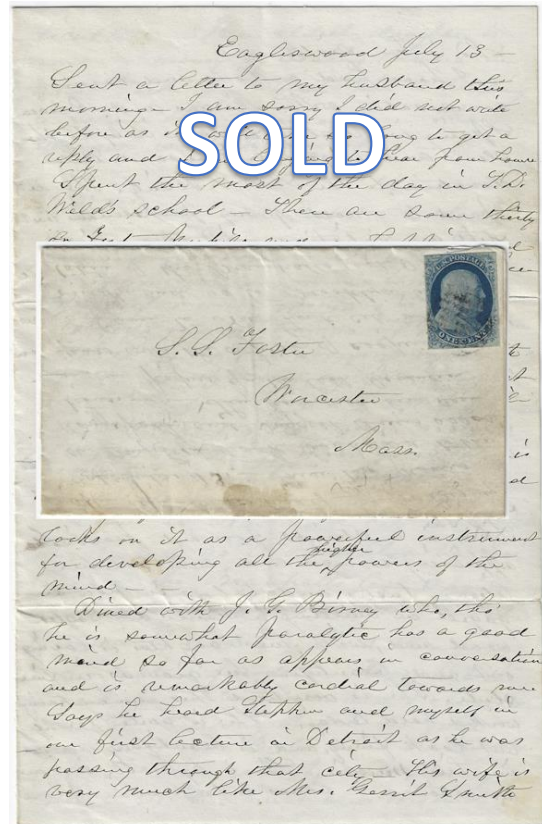 Eagleswood July 13 —
Sent a letter to my husband this
morning — I am sorry I did not write
before as it will be so long to get a
reply and I am longing to hear from home
SOLD
Spent the most of the day in T. D.
Weld's school — There are some thirty
U.S. POSTAGE
ONE CENT
S. S. Foster
Worcester
Mass.
is
looks on it as a powerful instrument
for developing all the higher powers of the
mind — —
Dined with J. G. Birney who, tho'
he is somewhat paralytic has a good
mind so far as appears in conversation
and is remarkably cordial towards me
Says he heard Stephen and myself in
our first lecture in Detroit as he was
passing through that city. His wife is
very much like Mrs. Gerrit Smith